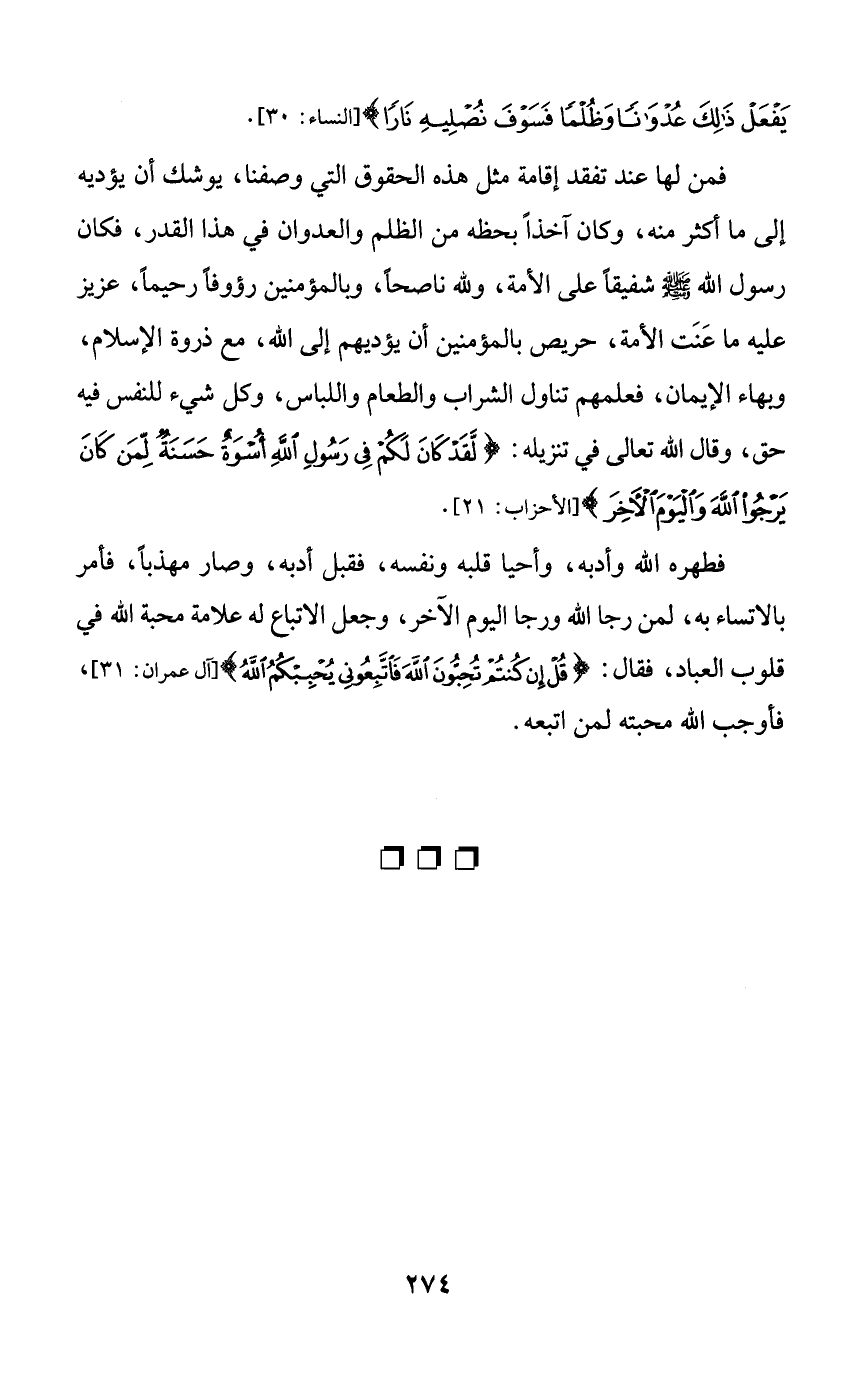 يَفْعَلْ ذَٰلِكَ عُدْوَٰنًا وَظُلْمًا فَسَوْفَ نُصْلِيهِ نَارًا ﴾ [النساء: ٣٠].
فمن لها عند تفقد إقامة مثل هذه الحقوق التي وصفنا، يوشك أن يؤديه
إلى ما أكثر منه، وكان آخذاً بحظه من الظلم والعدوان في هذا القدر، فكان
رسول الله ﷺ شفيقاً على الأمة، ولله ناصحاً، وبالمؤمنين رؤوفاً رحيماً، عزيز
عليه ما عَنَت الأمة، حريص بالمؤمنين أن يؤديهم إلى الله، مع ذروة الإسلام،
وبهاء الإيمان، فعلمهم تناول الشراب والطعام واللباس، وكل شيء للنفس فيه
حق، وقال الله تعالى في تنزيله: ﴿ لَّقَدْ كَانَ لَكُمْ فِى رَسُولِ ٱللَّهِ أُسْوَةٌ حَسَنَةٌ لِّمَن كَانَ
يَرْجُوا۟ ٱللَّهَ وَٱلْيَوْمَ ٱلْآخِرَ ﴾ [الأحزاب: ٢١].
فطهره الله وأدبه، وأحيا قلبه ونفسه، فقبل أدبه، وصار مهذباً، فأمر
بالاتساء به، لمن رجا الله ورجا اليوم الآخر، وجعل الاتباع له علامة محبة الله في
قلوب العباد، فقال: ﴿ قُلْ إِن كُنتُمْ تُحِبُّونَ ٱللَّهَ فَٱتَّبِعُونِى يُحْبِبْكُمُ ٱللَّهُ ﴾ [آل عمران: ٣١]،
فأوجب الله محبته لمن اتبعه.
٢٧٤